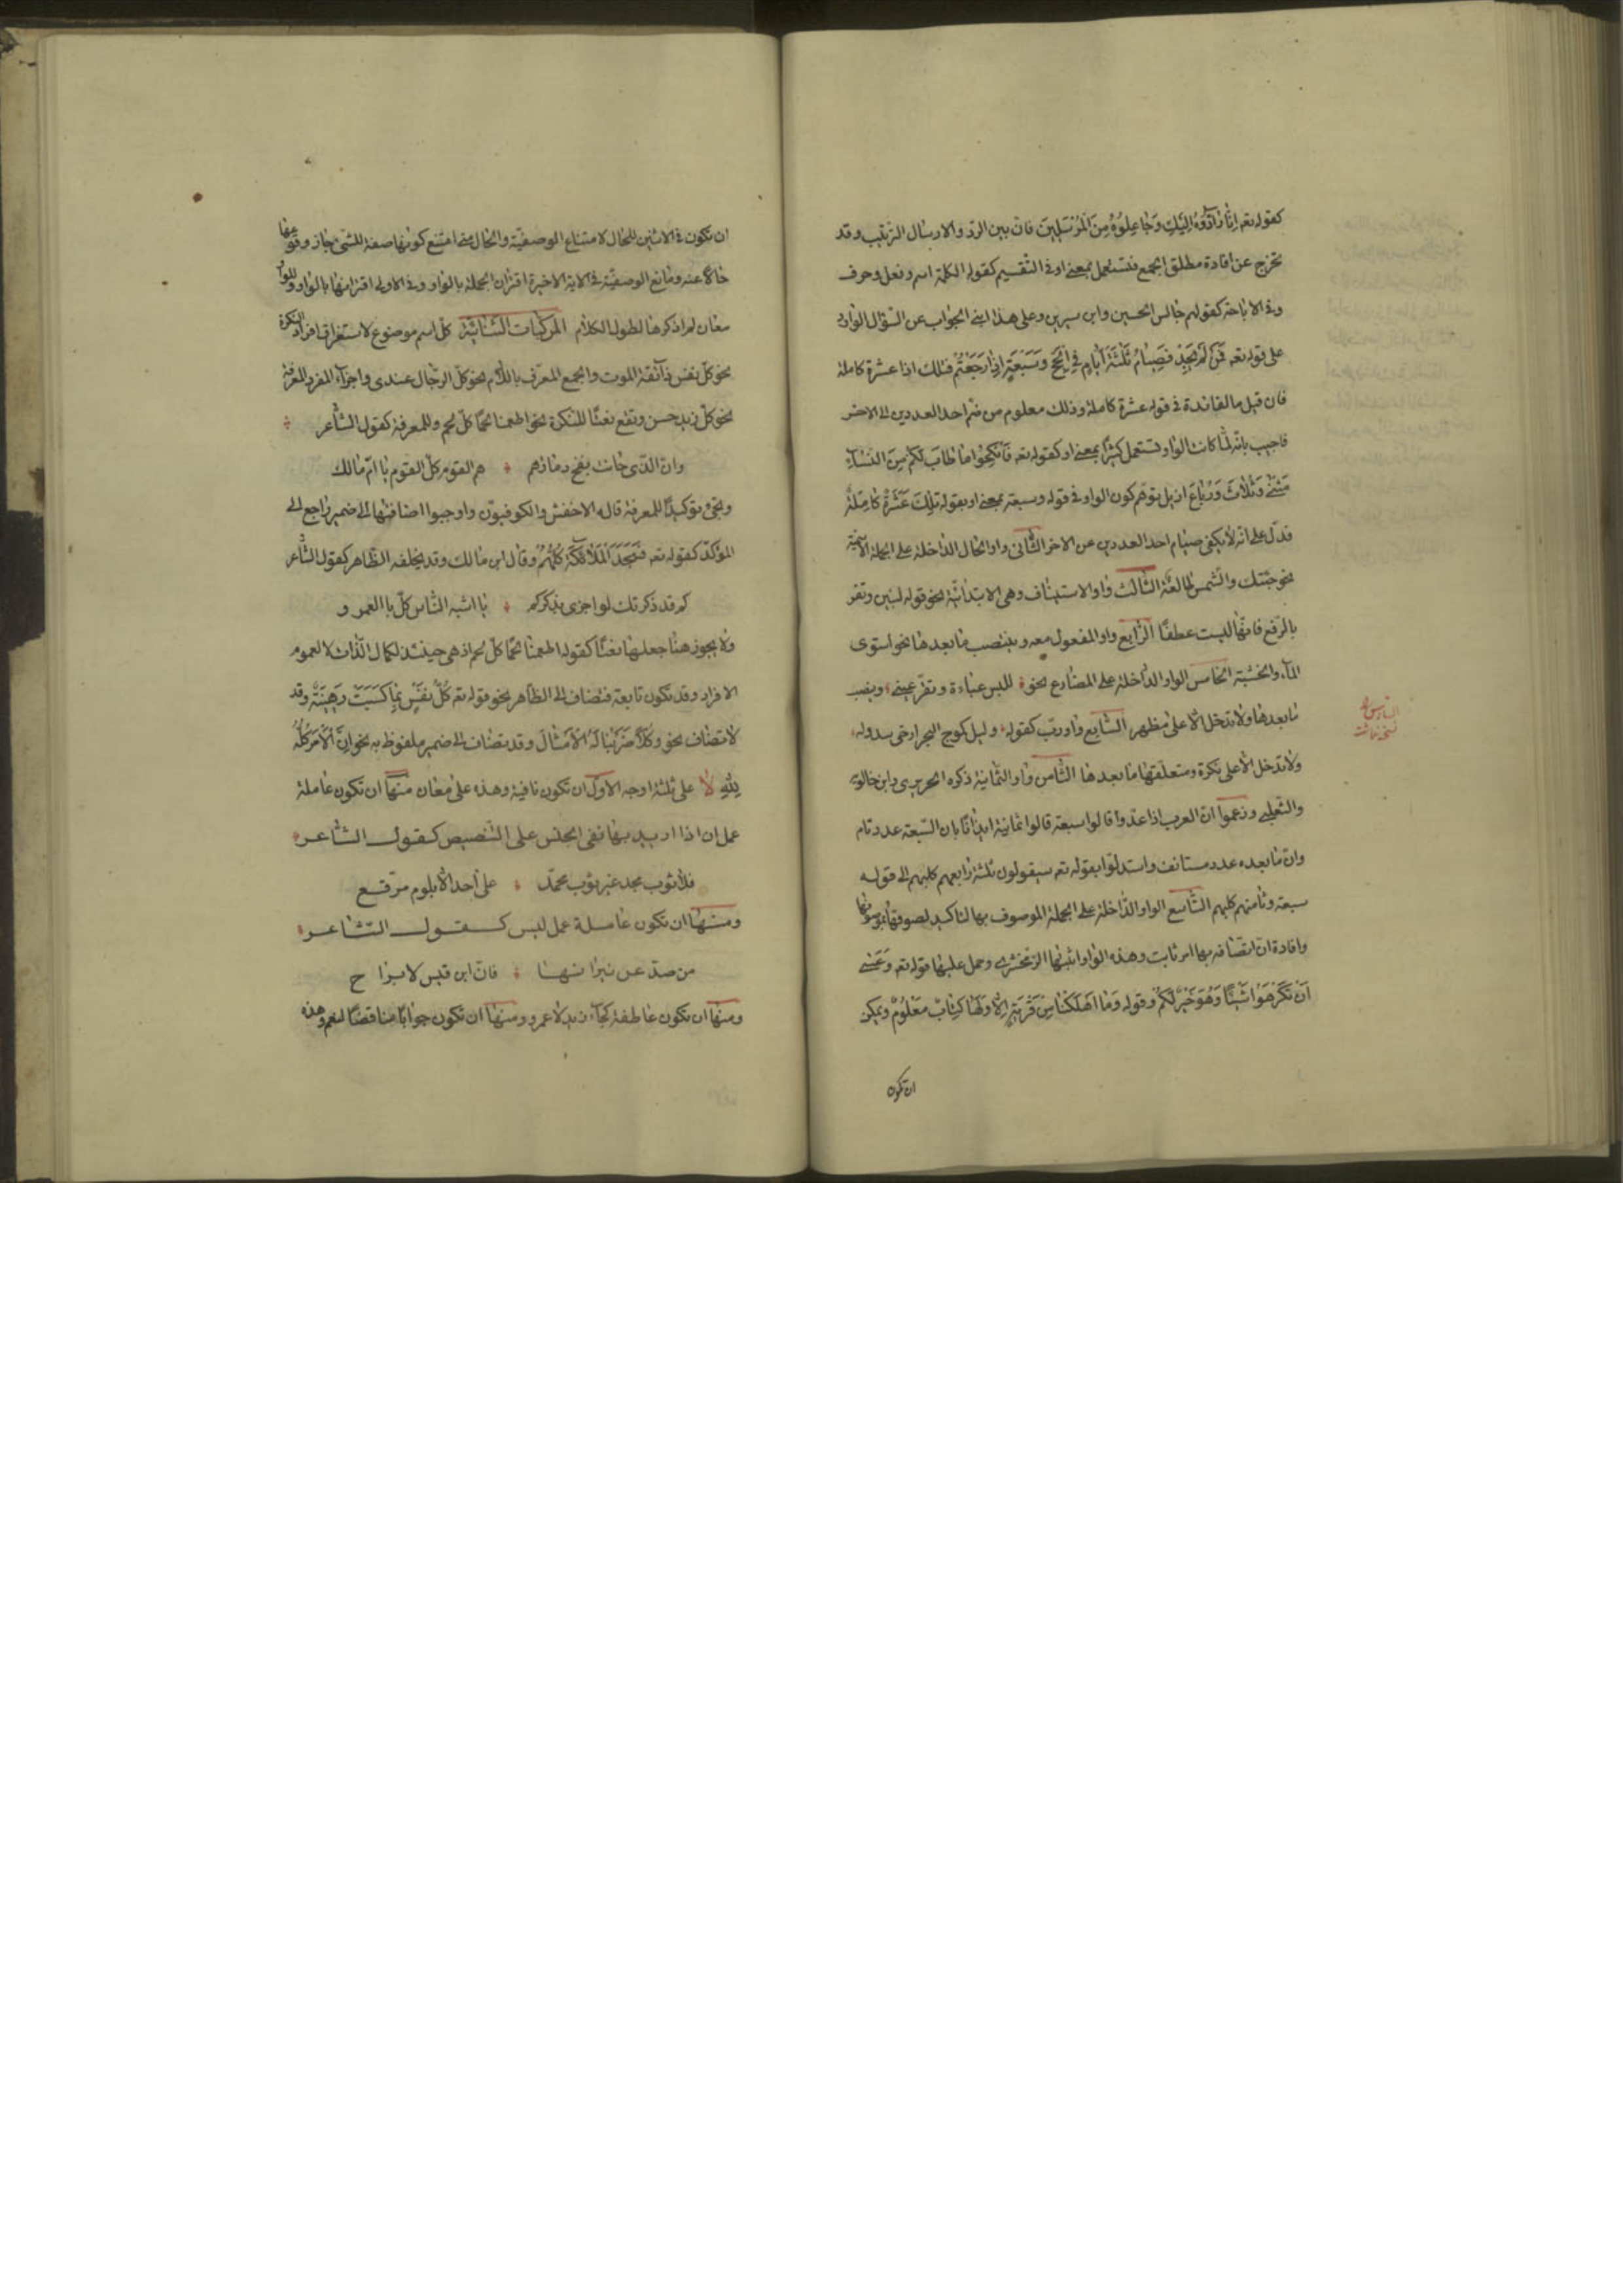 كقوله تعه اِنَّا رَادُّوهُ اِلَيْكِ وَجَاعِلُوهُ مِنَ المُرْسَلِينَ فان بين الردّ والارسال الترتيب وقد
تخرج عن افادة مطلق الجمع فتستعمل بمعنى او فى التقسيم كقوله الكلمة اسم وفعل وحرف
وفى الاباحة كقولهم جالس الحسين وابن سيرين وعلى هذا ابنى الجواب عن السؤال الوارد
على قوله تعه فَمَنْ لَمْ يَجِدْ فَصِيَامُ ثَلٰثَةِ اَيَّامٍ فِى الْحَجِّ وَسَبْعَةٍ اِذَا رَجَعْتُمْ فتلك اذا عشرة كاملة
فان قيل ما الفائدة فى قوله عشرة كاملة وذلك معلوم من ضم احد العددين الى الاخر
فاجيب بانه لمّا كانت الواو تستعمل كثيرًا بمعنى او كقوله تعه فَانْكِحُوا مَا طَابَ لَكُمْ مِنَ النِّسَاءِ
مَثْنٰى وَثُلَاثَ وَرُبَاعَ ازيل توهم كون الواو فى قوله وسبعة بمعنى او بقوله تِلْكَ عَشَرَةٌ كَامِلَةٌ
فدلّ على انّه لا يكفى صيام احد العددين عن الاخر الثّانى واو الحال الداخلة على الجملة الاسمية
نحو جئتك والشمس طالعة الثالث واو الاستيناف وهى الابتدائيّة نحو قوله لنبين ونقر
بالرفع فانّها ليست عطفًا الرّابع واو المفعول معه وينتصب ما بعدها نحو استوى
الماء والخشبة الخامس الواو الداخلة على المضارع نحو للبس عباءة وتقرّ عينى وينصب
السادس
نسخه
ما بعدها ولا تدخل الّا على مظهر السّابع واو ربّ كقوله وليل كموج البحر ارخى سدوله
ولا تدخل الّا على نكرة ومتعلّقها ما بعدها الثّامن واو الثّمانية ذكره الحريرى وابن خالويه
والثّعلبى وزعموا انّ العرب اذا عدّوا قالوا سبعة قالوا ثمانية ايذانًا بان السّبعة عدد تام
وانّ ما بعده عدد مستانف واستدلّوا بقوله تعه سيقولون ثلثة رابعهم كلبهم الى قوله
سبعة وثامنهم كلبهم التّاسع الواو الدّاخلة على الجملة الموصوف بها لتاكيد لصوقها بموصوفها
وافادة ان اتّصافه بها امر ثابت وهذه الواو اثبتها الزمخشرى وحمل عليها قوله تعه وَعَسٰى
اَنْ تَكْرَهُوا شَيْئًا وَهُوَ خَيْرٌ لَكُمْ وقوله وَمَا اَهْلَكْنَا مِنْ قَرْيَةٍ اِلَّا وَلَهَا كِتَابٌ مَعْلُومٌ ويمكن
ان تكون
ان تكون فى الاثنين للحال لامتناع الوصفيّة والحال متى امتنع كونها صفة للشئ جاز وقوعها
حالا عنه ومانع الوصفيّة فى الاية الاخيرة اقتران الجملة بالّا وفى الاولى اقترانها بالواو وللواو
معان لم اذكرها لطول الكلام المركبات الثّنائيّة كلّ اسم موضوع لاستغراق افراد النكرة
نحو كلّ نفس ذآئقة الموت والجمع المعرّف باللّام نحو كلّ الرجال عندى واجزاء المفرد المعرفة
نحو كلّ زيد حسن وتقع نعتًا للنكرة نحو اطعمنا لحمًا كلّ لحم وللمعرفة كقول الشّاعر
وان الذى حانت بفلج دماؤهم هم القوم كلّ القوم يا امّ مالك
وتجئ توكيدًا للمعرفة قاله الاخفش والكوفيّون واوجبوا اضافتها الى ضمير راجع الى
المؤكّد كقوله تعه فَسَجَدَ المَلَائِكَةُ كُلُّهُمْ وقال ابن مالك وقد يخلفه الظّاهر كقول الشّاعر
كم قد ذكرتك لو اجزى بذكركم يا اشبه النّاس كلّ يا العمر و
ولا يجوز هنا جعلها نعتًا كقوله اطعمنا لحمًا كلّ لحم اذ هى حينئذ لكمال الذّات لا لعموم
الافراد وقد تكون تابعة فتضاف الى الظّاهر نحو قوله تعه كُلُّ نَفْسٍ بِمَا كَسَبَتْ رَهِينَةٌ وقد
لا تضاف نحو وَكُلًّا ضَرَبْنَا لَهُ الْاَمْثَالَ وقد تضاف الى ضمير ملفوظ به نحو اِنَّ الْاَمْرَ كُلَّهُ
لِلّٰهِ لا على ثلثة اوجه الاوّل ان تكون نافية وهذه على معان منها ان تكون عاملة
عمل ان اذا اريد بها نفى الجنس على التّنصيص كقول الشّاعر
فلا ثوب مجد غير ثوب محمّد على احد الّا بلوم مرقّع
ومنها ان تكون عاملة عمل ليس كقول الشّاعر
من صدّ عن نيرانها فان ابن قيس لا براح
ومنها ان تكون عاطفة كجآء زيد لا عمرو ومنها ان تكون جوابًا مناقضًا لنعم وهذه